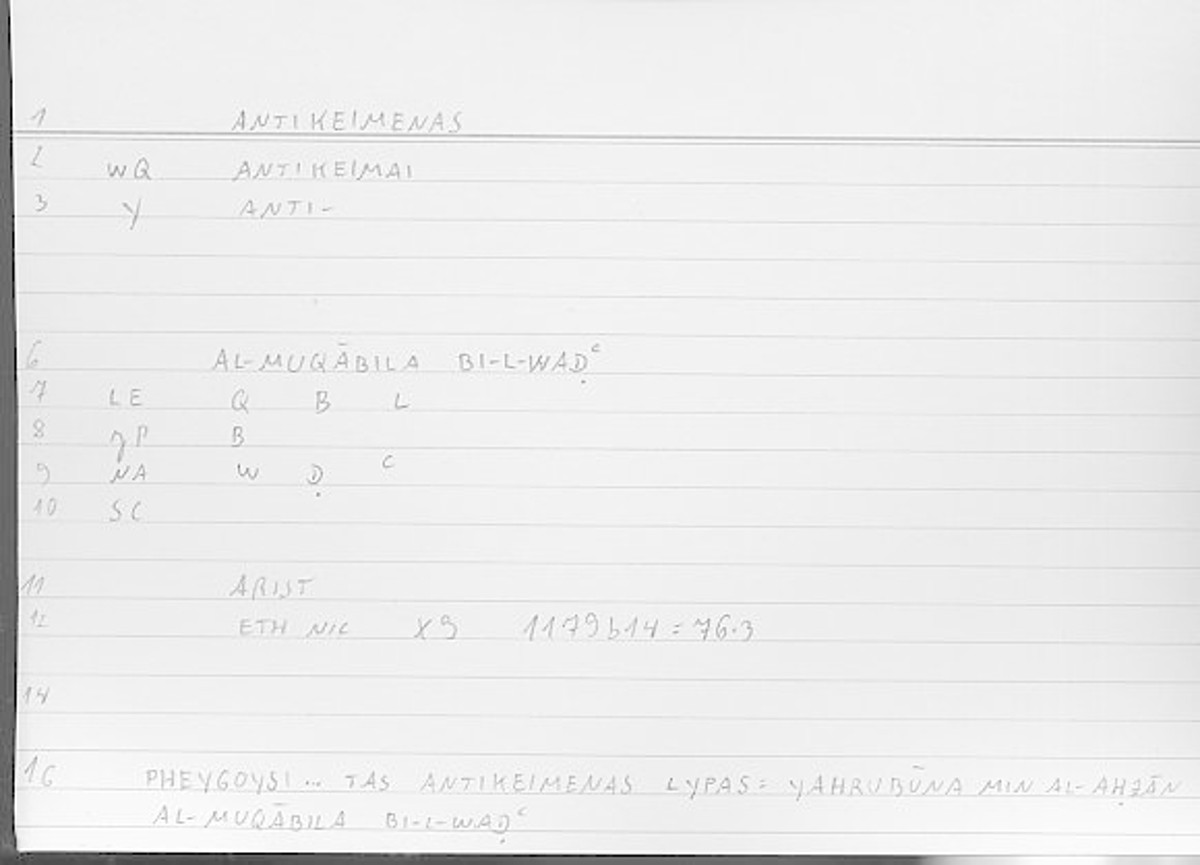 1 ANTIKEIMENAS
2 WQ ANTIKEIMAI
3 Y ANTI-
6 AL-MUQĀBILA BI-L-WAḌᶜ
7 LE Q B L
8 gP B
9 NA W Ḍ C
10 SC
11 ARIST
12 ETH NIC X9 1179b14 = 76.3
14
16 PHEYGOYSI... TAS ANTIKEIMENAS LYPAS = YAHRUBŪNA MIN AL-AḤZĀN
AL-MUQĀBILA BI-L-WAḌᶜ